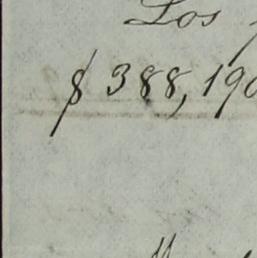 Los
$ 388,190